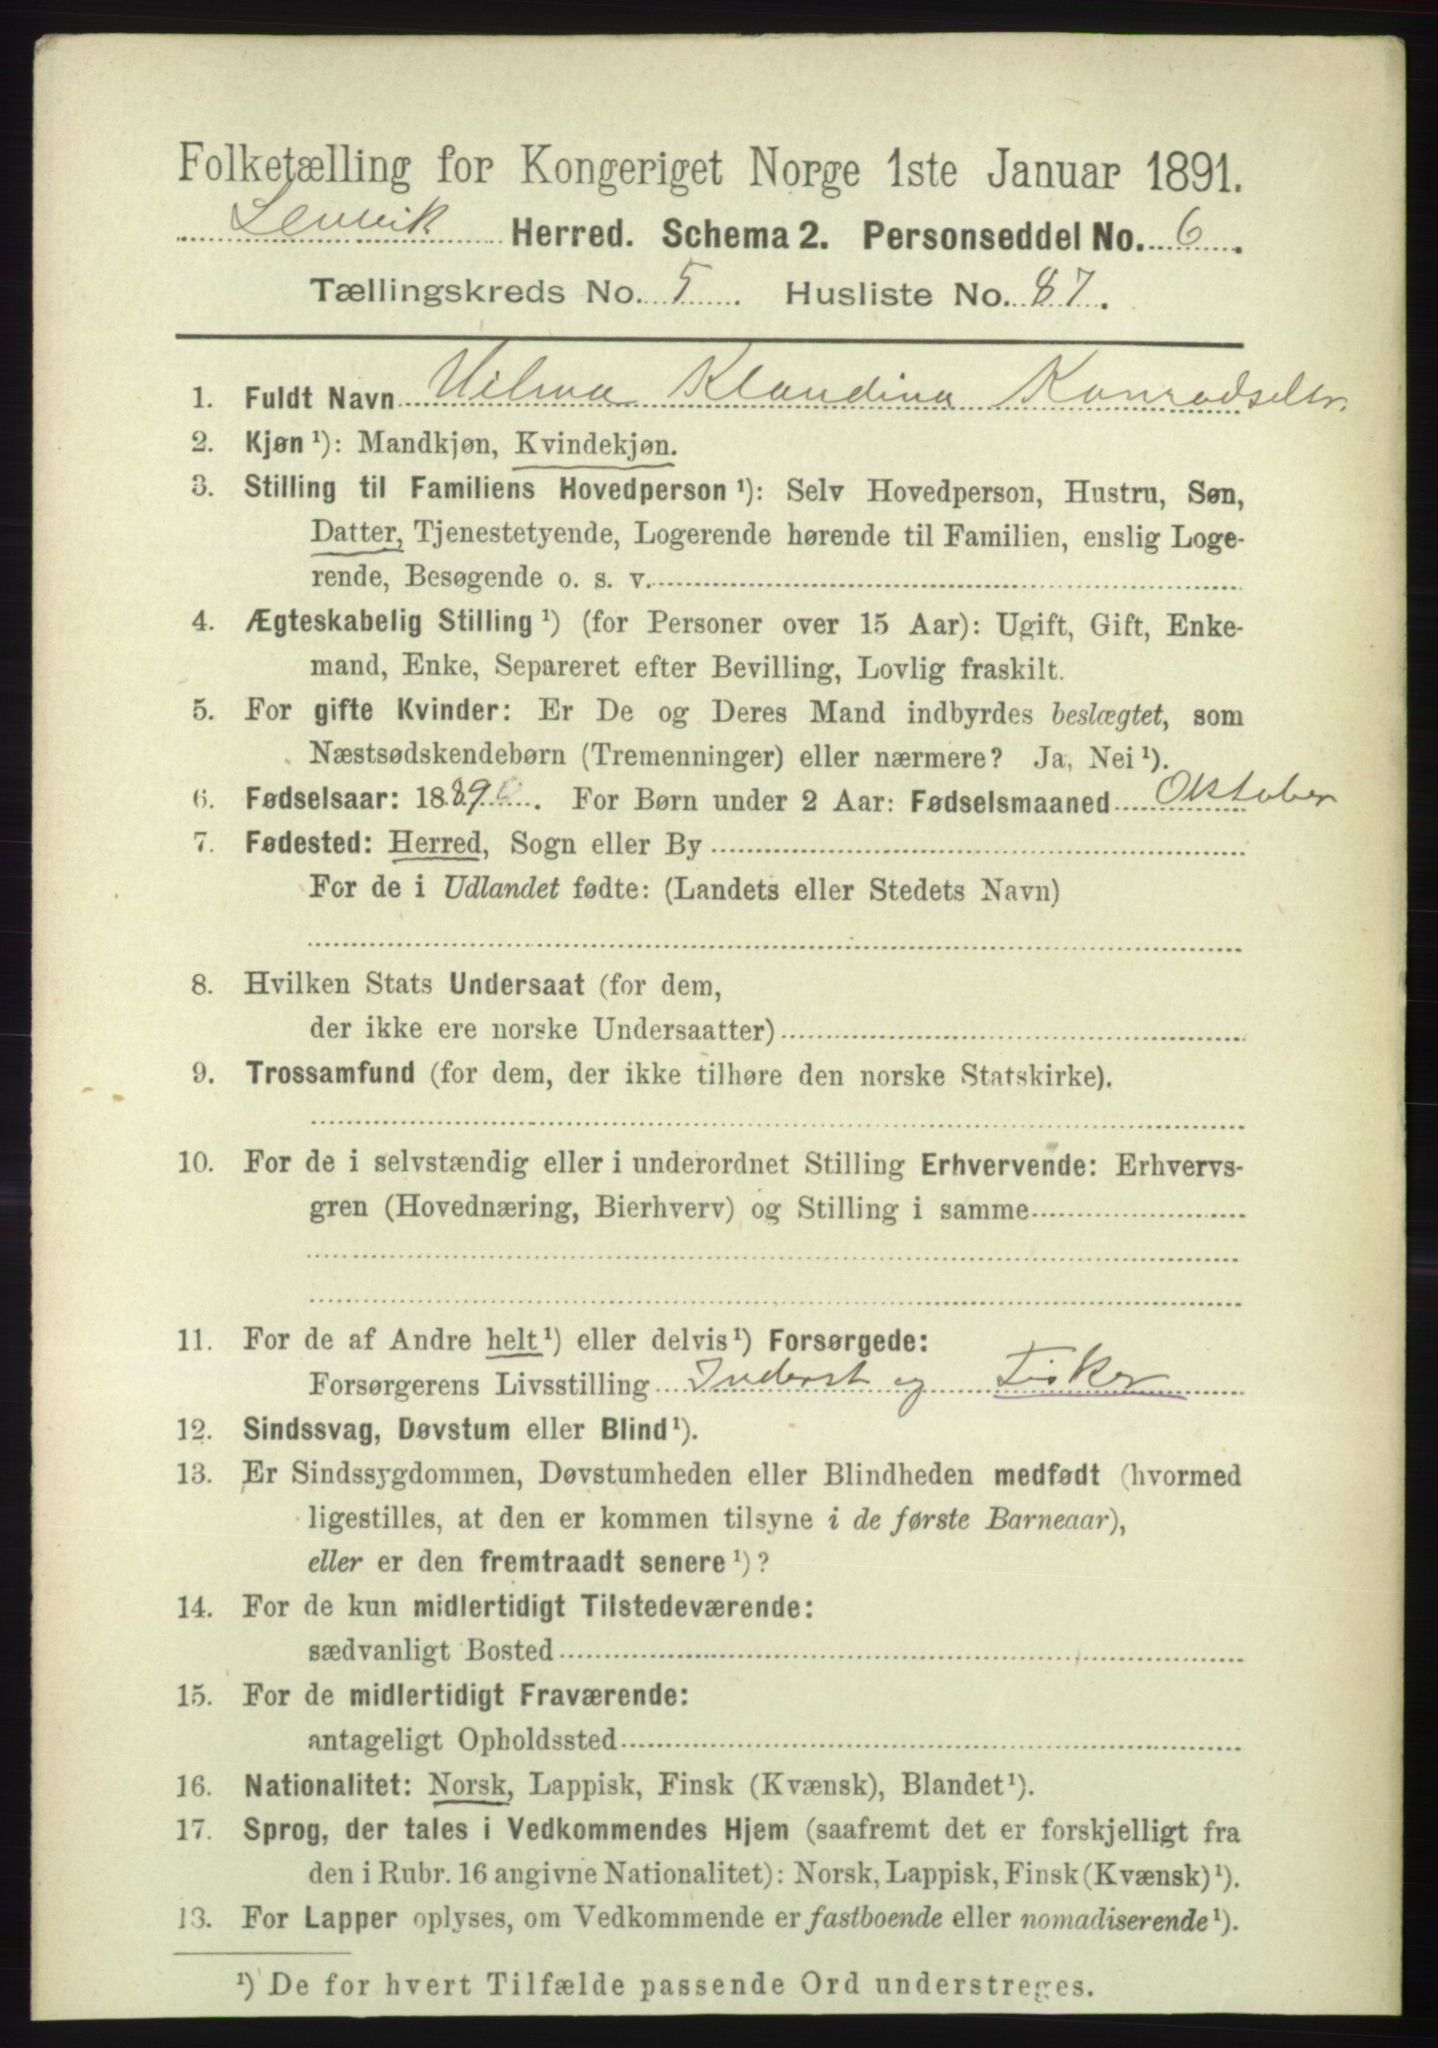 Folketælling for Kongeriget Norge 1ste Januar 1891.
Lenvik Herred. Schema 2. Personseddel No. 6.
Tællingskreds No. 5. Husliste No. 87.
1. Fuldt Navn Hilma Klaudina Konradsdtr.
2. Kjøn ¹): Mandkjøn, Kvindekjøn.
3. Stilling til Familiens Hovedperson ¹): Selv Hovedperson, Hustru, Søn,
Datter, Tjenestetyende, Logerende hørende til Familien, enslig Loge-
rende, Besøgende o. s. v.
4. Ægteskabelig Stilling ¹) (for Personer over 15 Aar): Ugift, Gift, Enke-
mand, Enke, Separeret efter Bevilling, Lovlig fraskilt.
5. For gifte Kvinder: Er De og Deres Mand indbyrdes beslægtet, som
Næstsødskendebørn (Tremenninger) eller nærmere? Ja, Nei ¹).
6. Fødselsaar: 1889. For Børn under 2 Aar: Fødselsmaaned Oktober
7. Fødested: Herred, Sogn eller By
For de i Udlandet fødte: (Landets eller Stedets Navn)
8. Hvilken Stats Undersaat (for dem,
der ikke ere norske Undersaatter)
9. Trossamfund (for dem, der ikke tilhøre den norske Statskirke).
10. For de i selvstændig eller i underordnet Stilling Erhvervende: Erhvervs-
gren (Hovednæring, Bierhverv) og Stilling i samme
11. For de af Andre helt ¹) eller delvis ¹) Forsørgede:
Forsørgerens Livsstilling Inderst og Fisker
12. Sindssvag, Døvstum eller Blind ¹).
13. Er Sindssygdommen, Døvstumheden eller Blindheden medfødt (hvormed
ligestilles, at den er kommen tilsyne i de første Barneaar),
eller er den fremtraadt senere ¹)?
14. For de kun midlertidigt Tilstedeværende:
sædvanligt Bosted
15. For de midlertidigt Fraværende:
antageligt Opholdssted
16. Nationalitet: Norsk, Lappisk, Finsk (Kvænsk), Blandet ¹).
17. Sprog, der tales i Vedkommendes Hjem (saafremt det er forskjelligt fra
den i Rubr. 16 angivne Nationalitet): Norsk, Lappisk, Finsk (Kvænsk) ¹).
13. For Lapper oplyses, om Vedkommende er fastboende eller nomadiserende ¹).
¹) De for hvert Tilfælde passende Ord understreges.